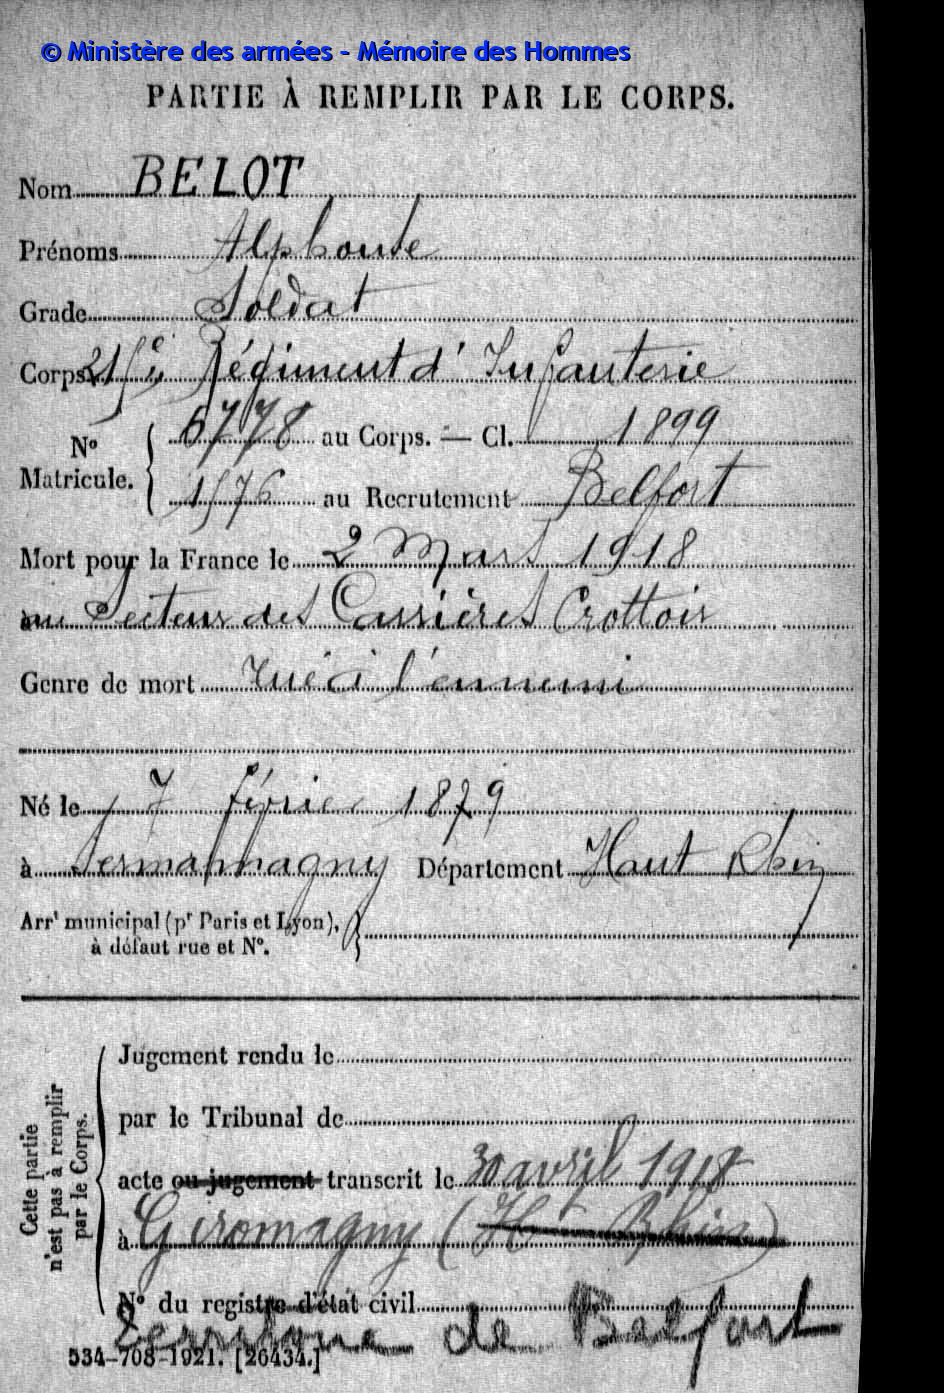 © Ministère des armées - Mémoire des Hommes
PARTIE À REMPLIR PAR LE CORPS.
Nom BELOT
Prénoms Alphonse
Grade Soldat
Corps 215e Régiment d'Infanterie
N° Matricule. { 6778 au Corps. — Cl. 1899
1576 au Recrutement Belfort
Mort pour la France le 2 Mars 1918
au Secteur des Carrières Crottoir
Genre de mort Tué à l'ennemi
Né le 7 février 1879
à Sermamagny Département Haut Rhin
Arrt municipal (pr Paris et Lyon), à défaut rue et N°.
Cette partie n'est pas à remplir par le Corps.
Jugement rendu le
par le Tribunal de
acte ou jugement transcrit le 30 avril 1918
à Giromagny (Ht Rhin)
N° du registre d'état civil
Territoire de Belfort
534-708-1921. [26434.]